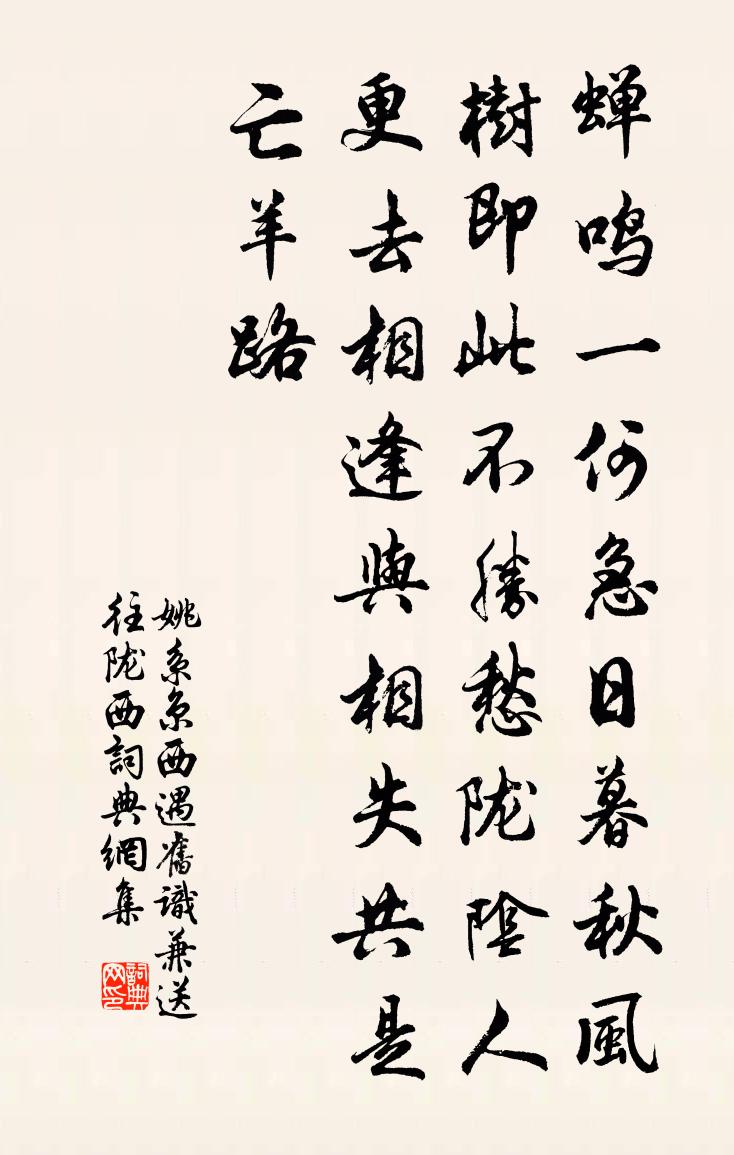 蝉鸣一何急日暮秋風
樹即此不勝愁陇陰人
更去相逢與相失共是
亡羊路
姚系京西遇舊識兼送
往陇西詞典網集
詞典网印